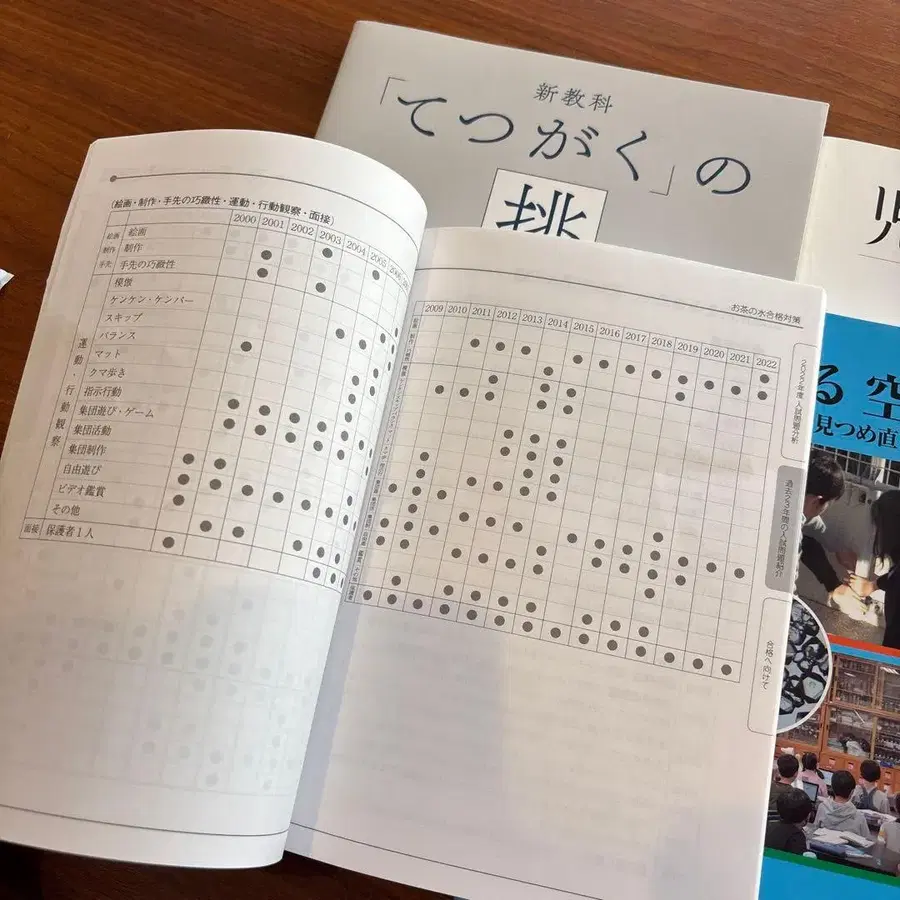 新教科
「てつがく」の
挑
(絵画・制作・手先の巧緻性・運動・行動観察・面接)
2000 2001 2002 2003 2004 2005
絵画 絵画
制作 制作
手先 手先の巧緻性
模倣
ケンケン・ケンパー
スキップ
バランス
マット
クマ歩き
指示行動
集団遊び・ゲーム
集団活動
集団制作
自由遊び
ビデオ鑑賞
その他
運動・行動観察
面接 保護者1人
お茶の水合格対策
2009 2010 2011 2012 2013 2014 2015 2016 2017 2018 2019 2020 2021 2022
2022年度入試問題分析
過去23年間の入試問題紹介
合格へ向けて
児
る 空
見つめ直